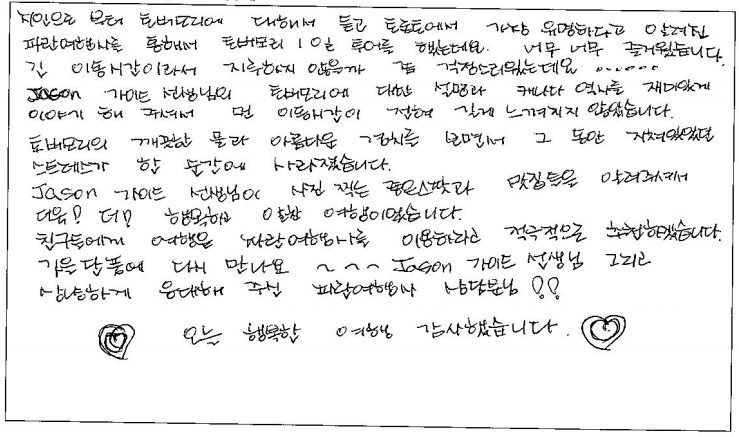 지인으로 부터 토버모리에 대해서 듣고 토론토에서 가장 유명하다고 알려진
파란여행사를 통해서 토버모리 1일 투어를 했는데요. 너무 너무 즐거웠습니다.
긴 이동시간이라서 지루하지 않을까 좀 걱정스러웠는데요 ......
Jason 가이드 선생님의 토버모리에 대한 설명과 캐나다 역사를 재미있게
이야기 해 주셔서 먼 이동시간이 전혀 길게 느껴지지 않았습니다.
토버모리의 깨끗한 물과 아름다운 경치를 보면서 그 동안 지쳐있었던
스트레스가 한 순간에 사라졌습니다.
Jason 가이드 선생님이 사진 찍는 좋은스팟과 맛집들을 알려주셔서
더욱! 더! 행복하고 알찬 여행이었습니다.
친구들에게 여행은 파란여행사를 이용하라고 적극적으로 추천하겠습니다.
가을단풍에 다시 만나요 ~~~ Jason 가이드 선생님 그리고
상냥하게 응대해 주신 파란여행사 상담분님 !!
오늘 행복한 여행 감사했습니다.